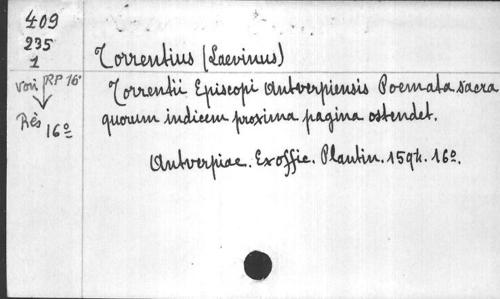 409
235
1
voir RP 16°
Rés 16º
Torrentius (Laevinus)
Torrentii Episcopi Antverpiensis Poemata sacra
quorum indicem proxima pagina ostendet.
Antverpiae. Ex offic. Plantin. 1594. 16º.